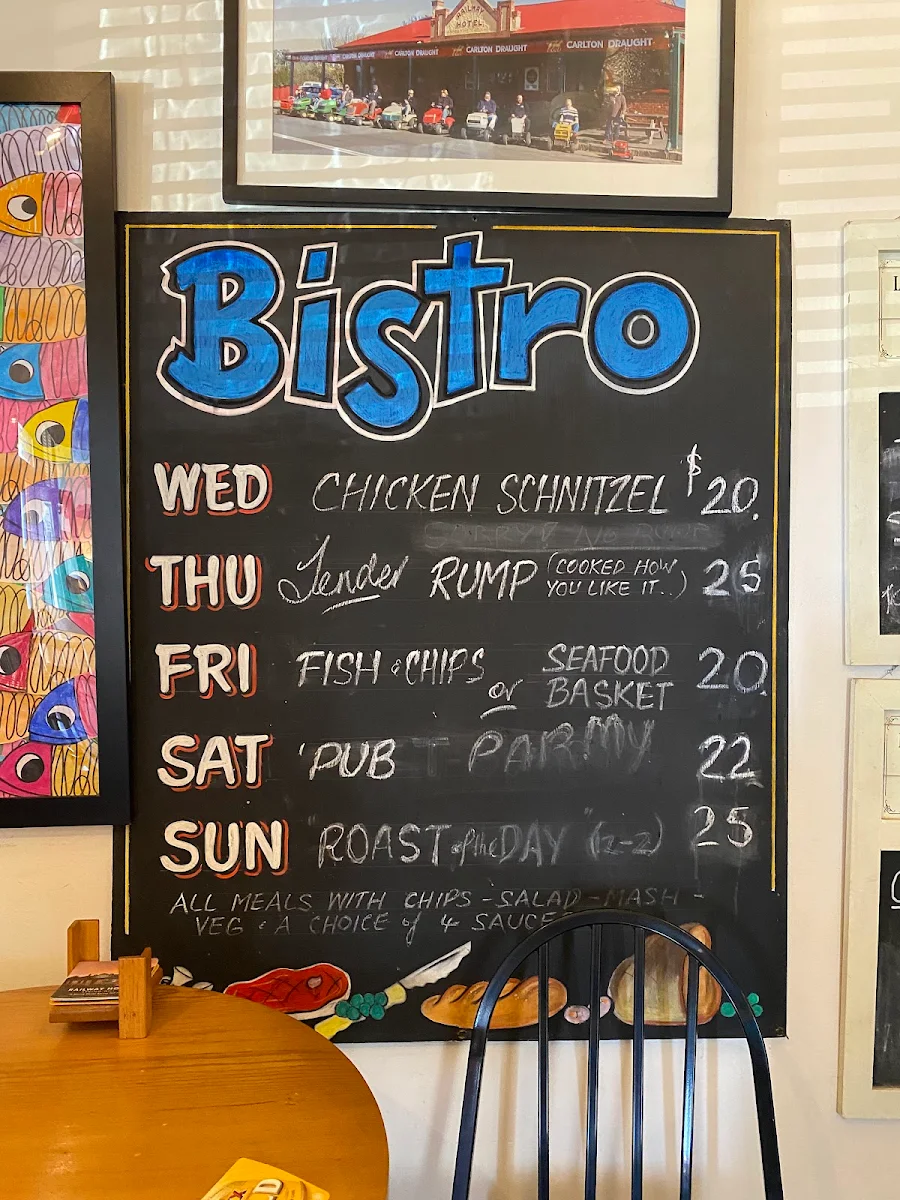 HOTEL
CARLTON DRAUGHT CARLTON DRAUGHT CARLTON DRAUGHT
Bistro
WED CHICKEN SCHNITZEL $20.
THU Tender RUMP (COOKED HOW YOU LIKE IT..) 25
FRI FISH & CHIPS or SEAFOOD BASKET 20.
SAT 'PUB PARMY 22
SUN "ROAST of the DAY" (12-2) 25
ALL MEALS WITH CHIPS - SALAD - MASH -
VEG & A CHOICE of 4 SAUCES
RAILWAY